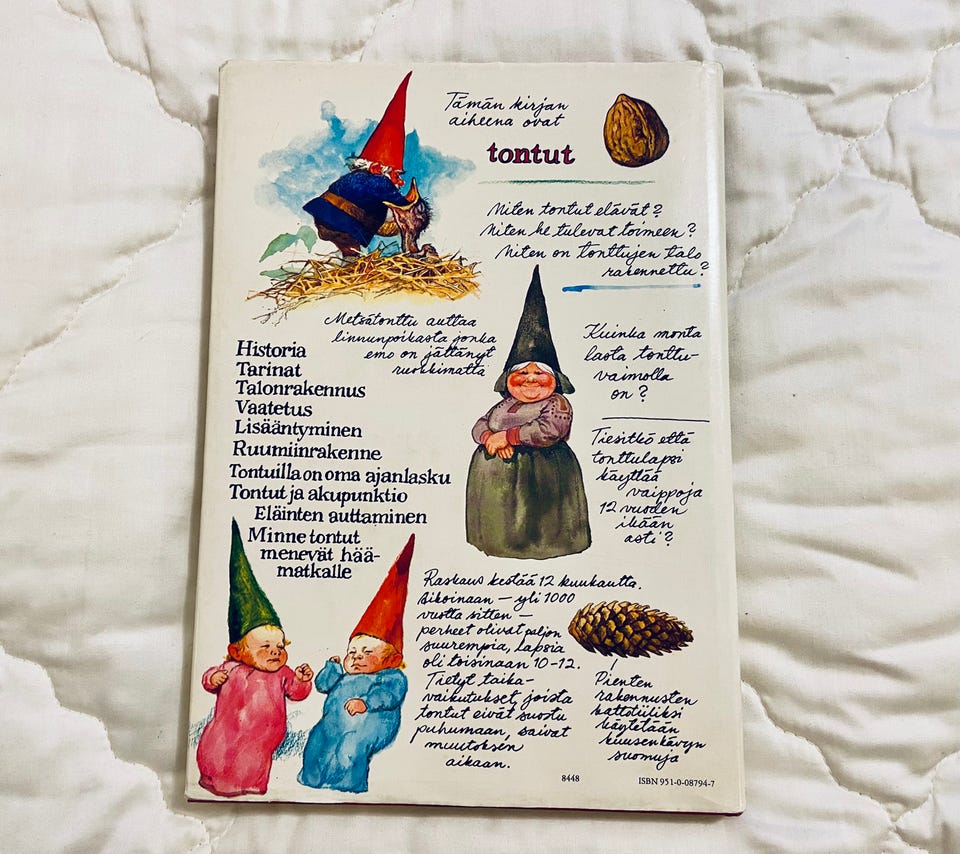 Tämän kirjan
aiheena ovat
tontut
Miten tontut elävät?
Miten he tulevat toimeen?
Miten on tonttujen talo
rakennettu?
Metsätonttu auttaa
linnunpoikasta jonka
emo on jättänyt
ruokkimatta
Historia
Tarinat
Talonrakennus
Vaatetus
Lisääntyminen
Ruumiinrakenne
Tontuilla on oma ajanlasku
Tontut ja akupunktio
Eläinten auttaminen
Minne tontut
menevät hää-
matkalle
Kuinka monta
lasta tonttu-
vaimolla
on?
Tiesitkö että
tonttulapsi
käyttää
vaippoja
12 vuoden
ikään
asti?
Raskaus kestää 12 kuukautta.
Aikoinaan – yli 1000
vuotta sitten –
perheet olivat paljon
suurempia, lapsia
oli toisinaan 10-12.
Tietyt taika-
vaikutukset, joista
tontut eivät suostu
puhumaan, saivat
muutoksen
aikaan.
Pienten
rakennusten
kattotiiliksi
käytetään
kuusenkävyn
suomuja
8448
ISBN 951-0-08794-7